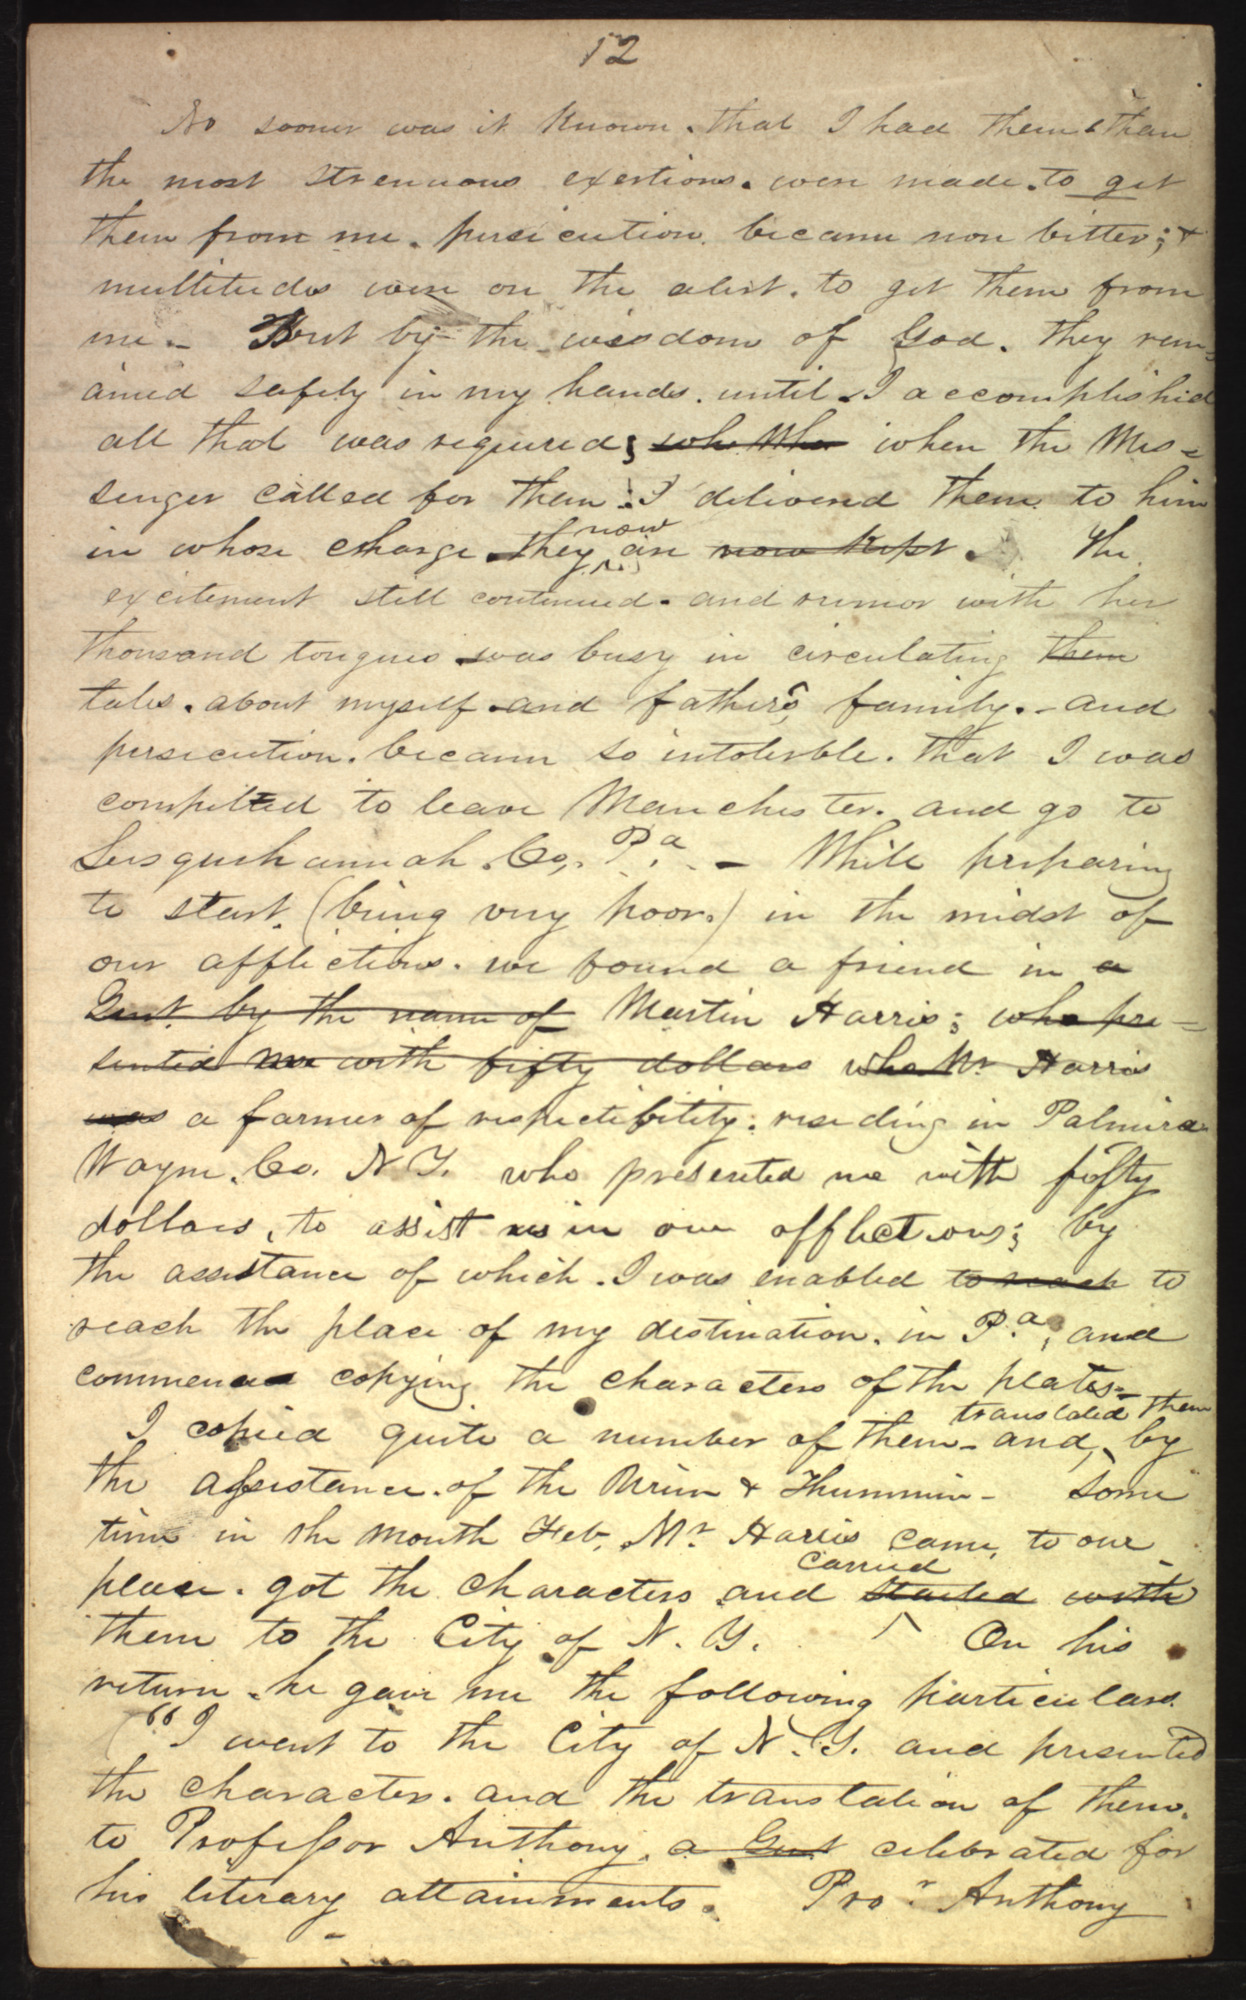 12
No sooner was it known. that I had them & than
the most strenuous exertions. were made. to get
them from me. persicution. became more bitter; &
multitudes were on the alert. to get them from
me.- But by the wisdom of God. they rem=
ained safely in my hands. until. I accomplished
all that was required; who Whe when the Mes=
senger called for them: I delivered them to him
now
in whose charge they are now kept. The
excitement still continued. and rumor with her
thousand tongues was busy in circulating them
tales. about myself. and father's family.- and
persicution. became so intolerble. that I was
compelled to leave Manchester. and go to
Susquehannah. Co, Pa. - While preparing
to start. (being very poor.) in the midst of
our afflictions. we found a friend in a
Gent. by the name of Martin Harris; who pre=
sented me with fifty dollars who Mr Harris
was a farmer of respectibility. resieding in Palmira
Wayne. Co. N.Y. who presented me with fifty
dollars, to assist us in our afflictions; by
the assistance of which. I was enabled to reach to
reach the place of my destination. in Pa., and
commenced copying the characters of the plates=
translated them
I copied quite a number of them- and, by
the assistance. of the Urim & Thummim- some
time in the month Feb. Mr. Harris came, to our
carried
place. got the characters and started with
them to the City of N. Y. ^ On his
return. he gave me the following particulars.
("I went to the City of N. Y. and presented
the characters. and the translation of them.
to Professor Anthony. a Gent celebrated for
his literary attainments. Pror Anthony